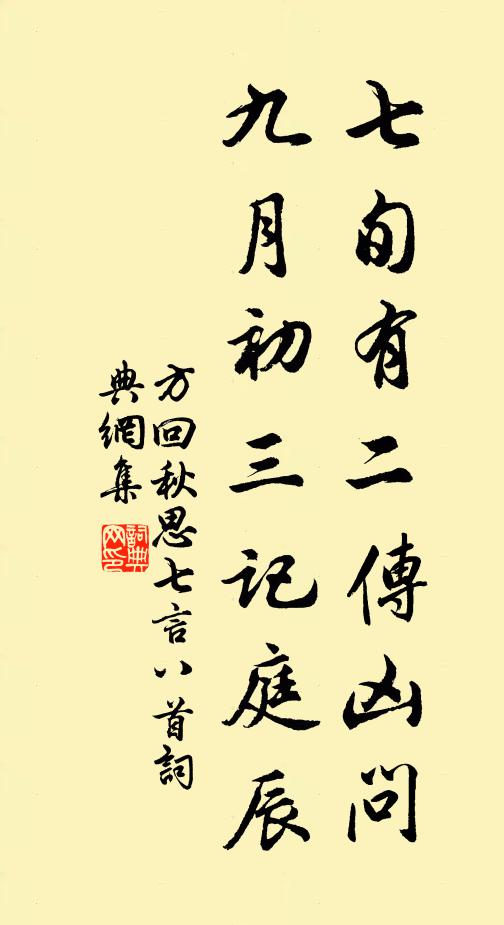 七旬有二傳凶問
九月初三記庭辰
方回秋思七言八首詞
典網集
詞典
网印